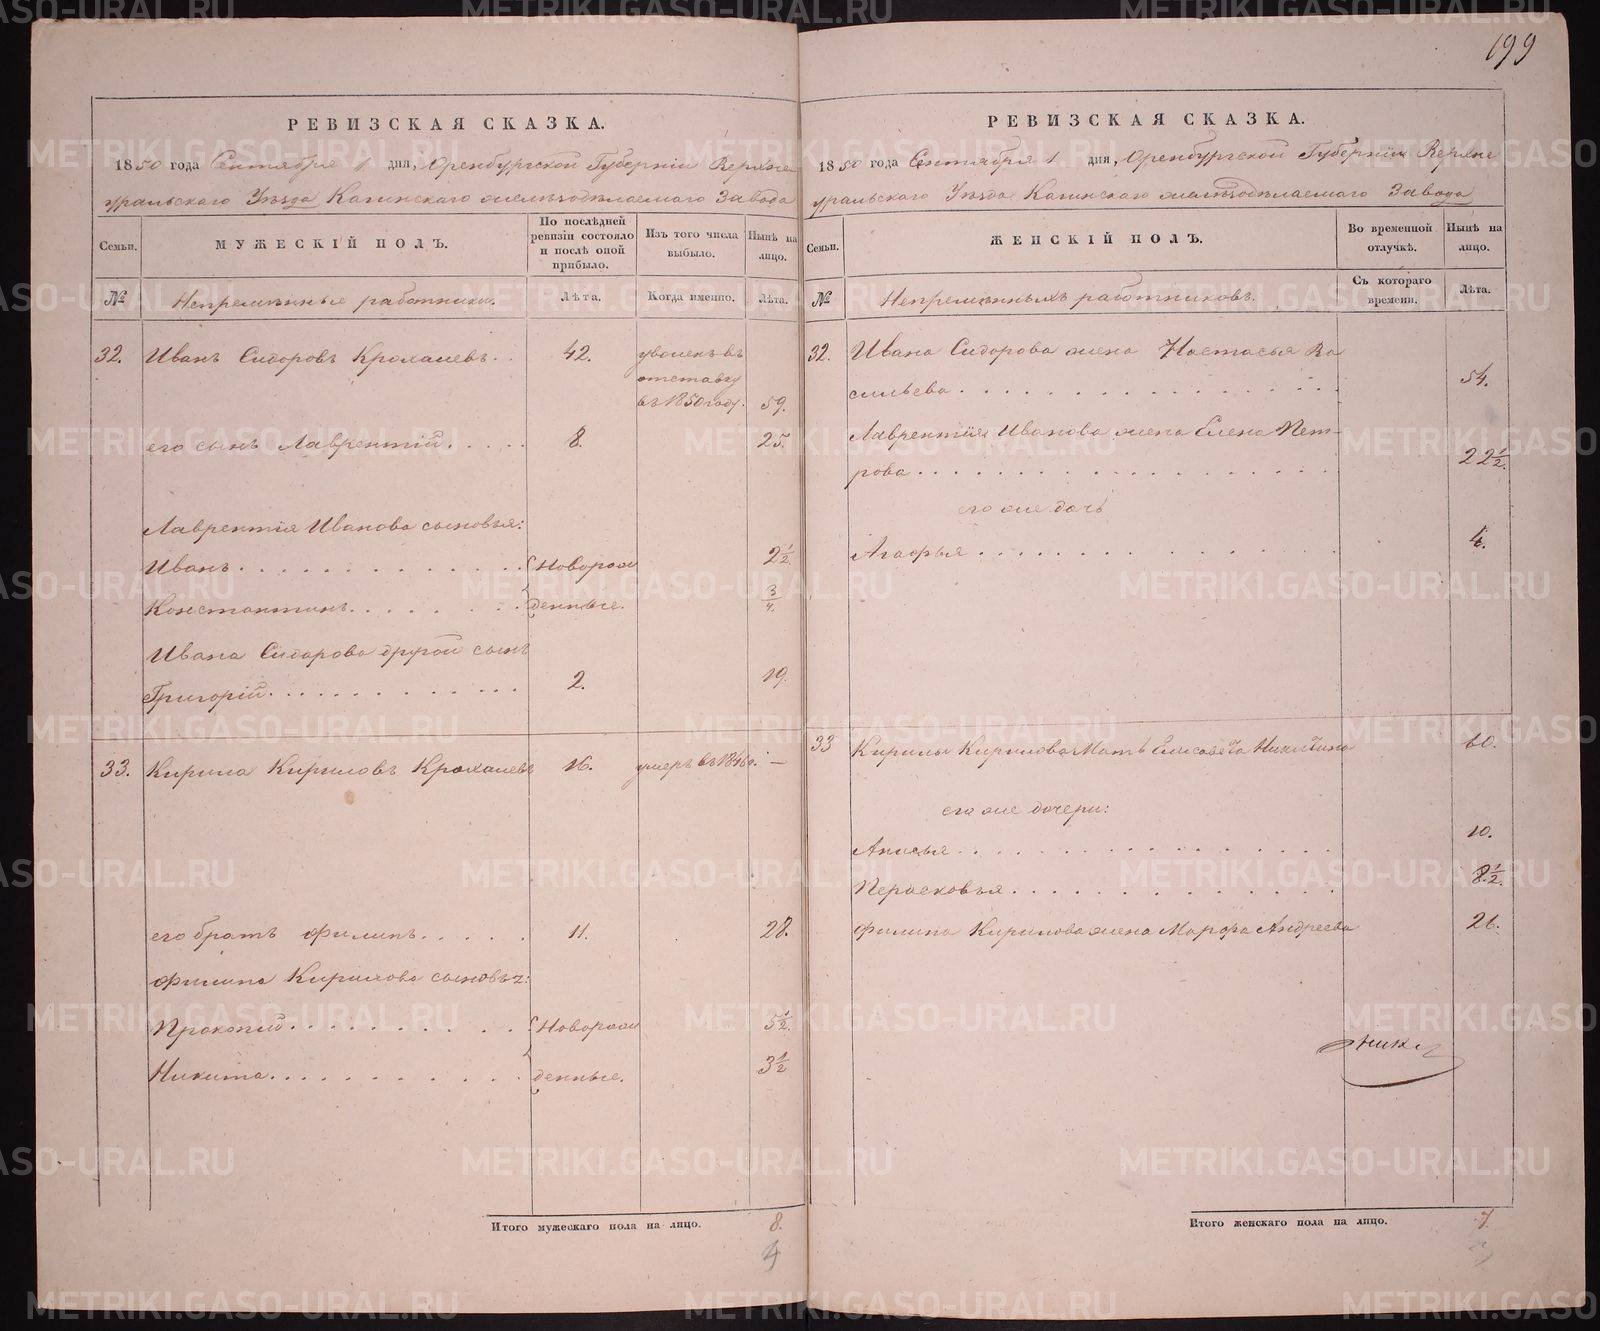 199
РЕВИЗСКАЯ СКАЗКА.
1850 года Сентября 1 дня, Оренбургской Губерніи Верхне
уральскаго Уѣзда Кагинскаго желѣзодѣлаемаго Завода
Семьи.
МУЖЕСКІЙ ПОЛЪ.
По послѣдней ревизіи состояло и послѣ оной прибыло.
Изъ того числа выбыло.
Нынѣ на лицо.
№
Непремѣнные работники.
Лѣта.
Когда именно.
Лѣта.
32. Иванъ Сидоровъ Крохалевъ. . 42. уволенъ въ
отставку
въ 1850 году. 59.
его сынъ Лаврентій. . . . . 8. 25.
Лаврентія Иванова сыновья:
Иванъ. . . . . . . . . . . . . Новорож 2 1/2
Константинъ. . . . . . . . денные. 3/4.
Ивана Сидорова другой сынъ
Григорій. . . . . . . . . . . . 2. 19.
33. Кирила Кириловъ Крохалевъ 16. умеръ въ 1846 г. —
его братъ Филипъ. . . . . 11. 28.
Филипа Кирилова сыновья:
Прокопій. . . . . . . . . . Новорож 5 1/2.
Никита. . . . . . . . . . . денные. 3 1/2
Итого мужескаго пола на лицо. 8.
4
РЕВИЗСКАЯ СКАЗКА.
1850 года Сентября 1 дня, Оренбургской Губерніи Верхне
уральскаго Уѣзда Кагинскаго желѣзодѣлаемаго Завода
Семьи.
ЖЕНСКІЙ ПОЛЪ.
Во временной отлучкѣ.
Нынѣ на лицо.
№
Непремѣнныхъ работниковъ.
Съ котораго времени.
Лѣта.
32. Ивана Сидорова жена Настасья Ва
сильева . . . . . . . . . . . . . . . 54.
Лаврентія Иванова жена Елена Пет-
рова . . . . . . . . . . . . . . . . . 22 1/2.
его же дочь
Агафья . . . . . . . . . . . . . . . 4.
33 Кирилы Кирилова Мать Елисовета Никитина 60.
его же дочери:
Анисья. . . . . . . . . . . . . . . 10.
Перасковья. . . . . . . . . . . . 8 1/2.
Филипа Кирилова жена Марфа Андреева 26.
Итого женскаго пола на лицо. 7.
METRIKI.GASO-URAL.RU